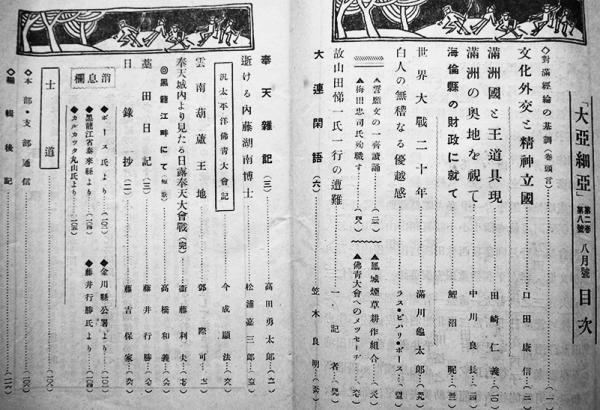 「大亞細亞」第二卷第八號 八月號 目次
◇對滿經論の基調（卷頭言）
文化外交と精神立國 口田康信
滿洲國と王道具現 田崎仁義
滿洲の奧地を視て 中川良長
海倫縣の財政に就て 鯉沼昵
世界大戰二十年 滿川龜太郎
白人の無稽なる優越感 ラス・ビハリ・ボース
▲雲願文の一齊讀誦
▲鳳城煙草耕作組合
▲梅田忠司氏殉職す
▲佛青大會へのメッセーヂ
故山田悌一氏一行の遭難 一記者
大連閑語（六） 笠木良明
奉天雜記（二） 高田勇太郎
逝ける內藤湖南博士 松浦嘉三郎
汎太平洋佛青大會記 今成顯法
雲南葫蘆王地 郭際可
奉天城內より見たる日露奉天大會戰（完） 衞藤利夫
◎黑龍江畔にて 高橋和義
藁田日記（三） 藤井行勝
日錄一抄（二） 藤吉保家
消息欄
◆ボース氏より
◆金川縣公署より
◆黑龍江省泰來縣より
◆藤井行勝氏より
◆カルカッタ丸山氏より
士道
◇本部・支部通信
◇編輯後記